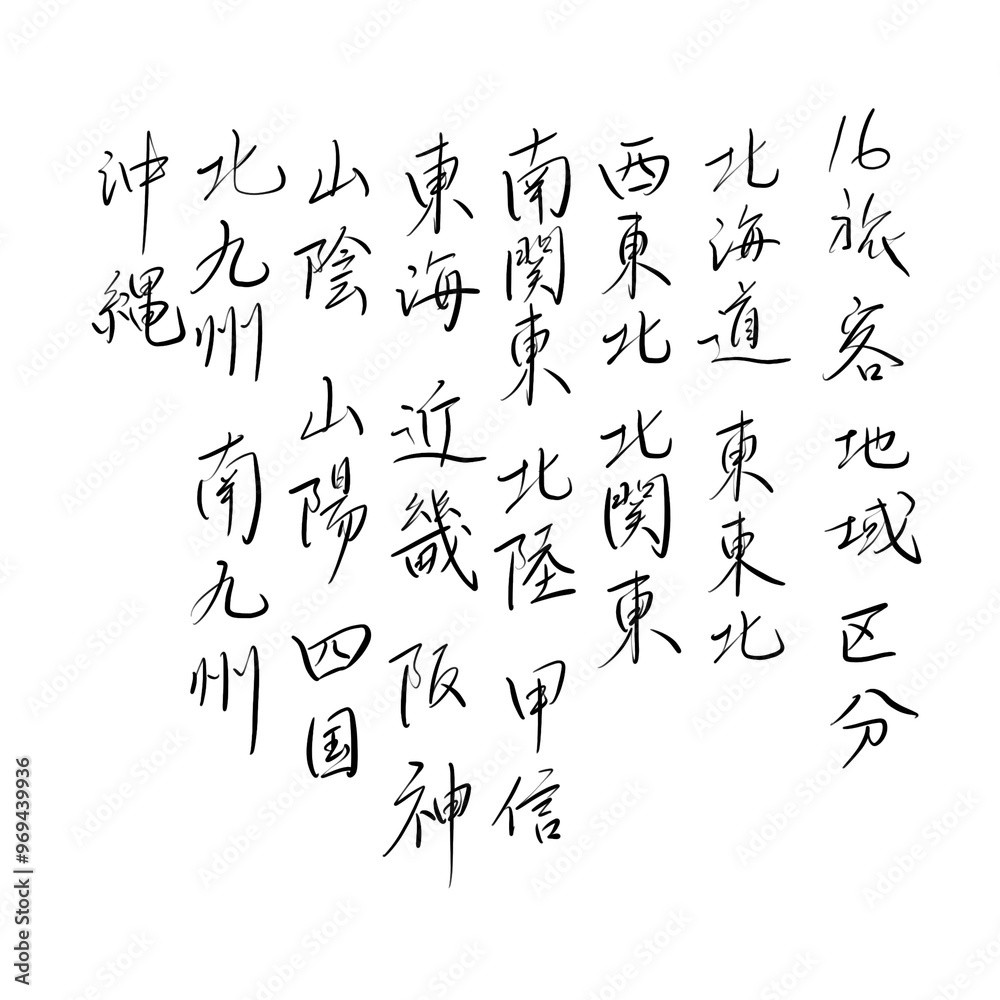 16旅客地域区分
北海道 東東北
西東北 北関東
南関東 北陸 甲信
東海 近畿 阪神
山陰 山陽 四国
北九州 南九州
沖縄
Adobe Stock | #969439936